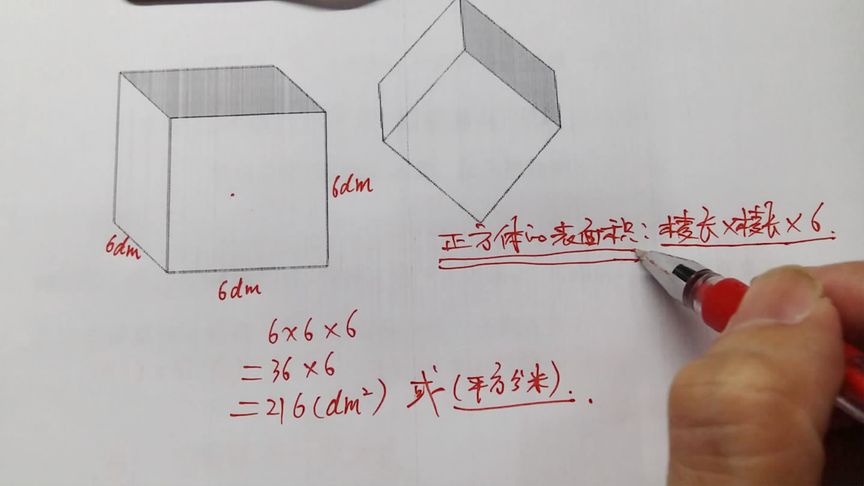 6dm
6dm
6dm
正方体的表面积:棱长×棱长×6.
6×6×6
=36×6
=216(dm²) 或 (平方分米).